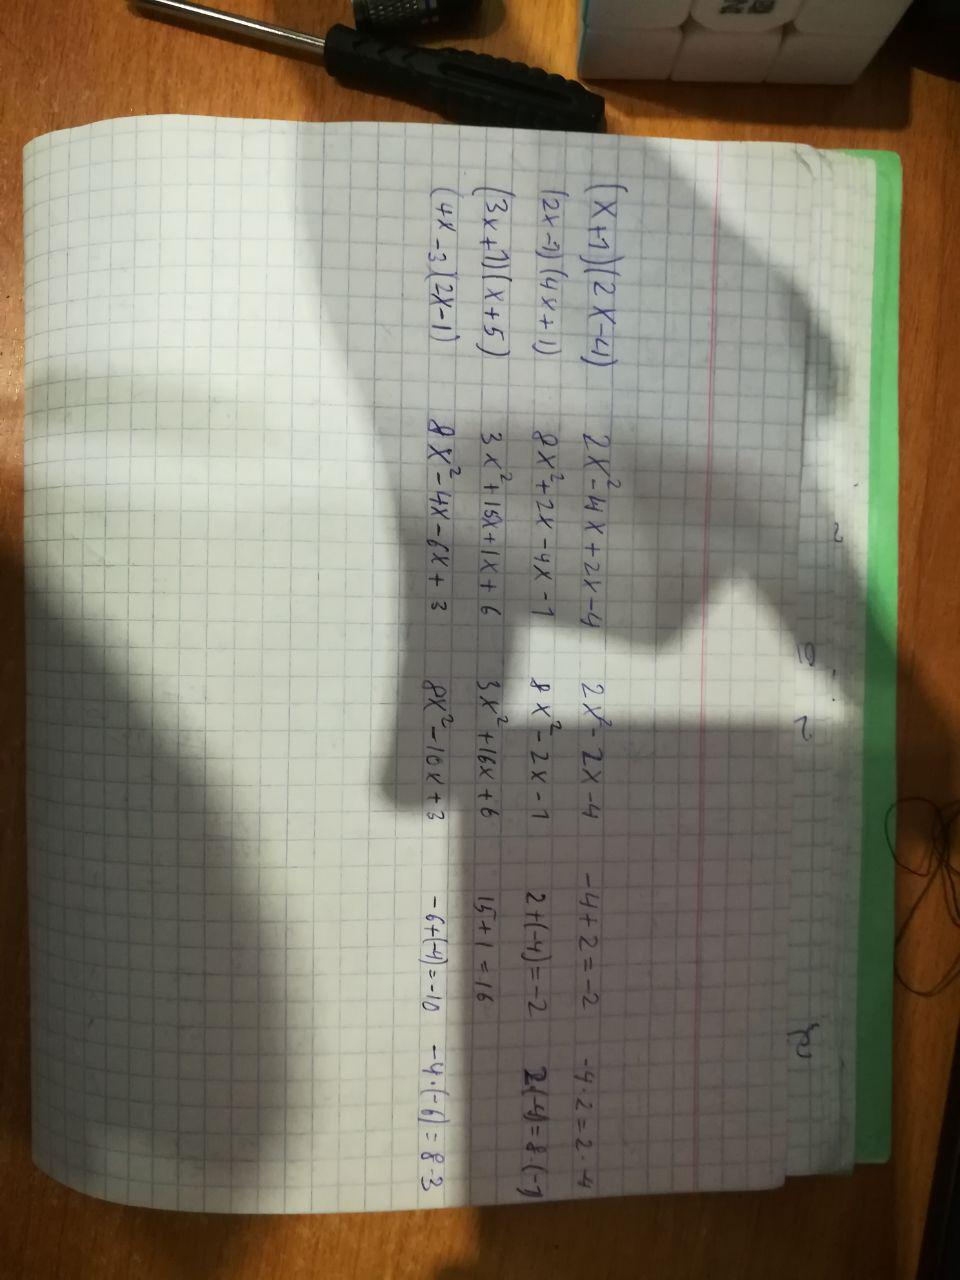 (x+1)(2x-4) 2x²-4x+2x-4 2x²-2x-4 -4+2=-2 -4·2=2·4
(2x-1)(4x+1) 8x²+2x-4x-1 8x²-2x-1 2+(-4)=-2 2·(-4)=8·(-1)
(3x+1)(x+5) 3x²+15x+1x+6 3x²+16x+6 15+1=16
(4x-3(2x-1) 8x²-4x-6x+3 8x²-10x+3 -6+(-4)=-10 -4·(-6)=8·3